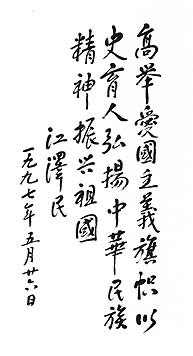 高举愛國主義旗帜以
史育人弘揚中華民族
精神振兴祖國
江澤民
一九九七年五月廿六日